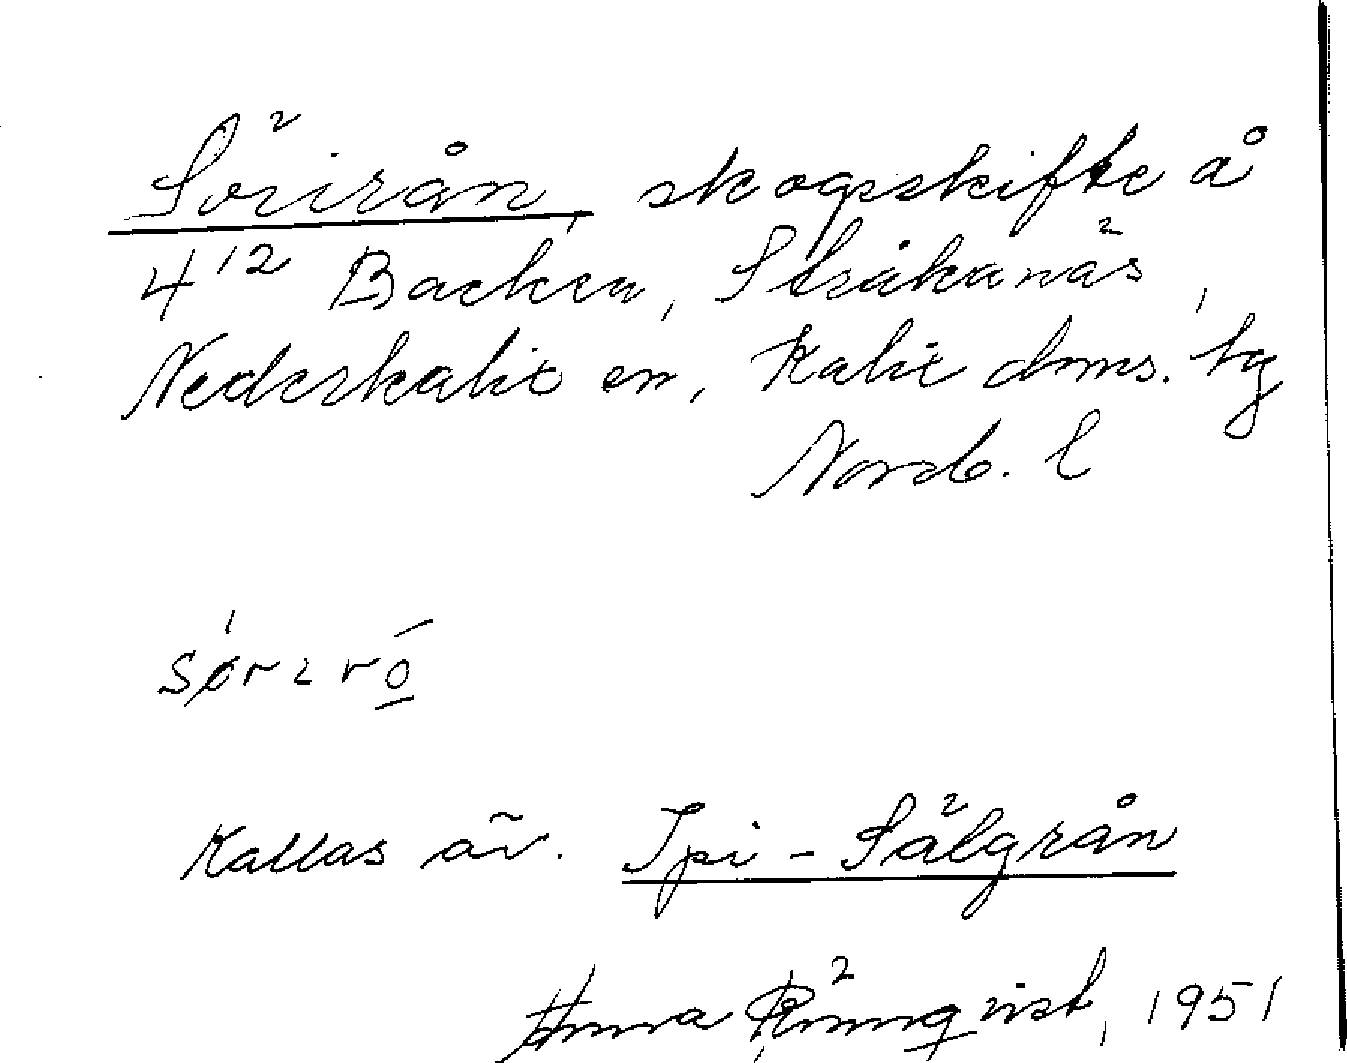 Sörirån, skogsskifte å
4¹² Backen, Stråkanäs,
Nederkalix sn, Kalix doms. tg
Norrb. l
sørıró̱
Kallas äv. Ipi-Sälgrån
Anna Rönnqvist, 1951